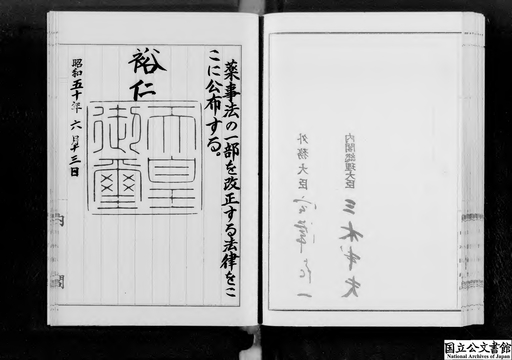 内閣総理大臣 三木武夫
外務大臣 宮澤喜一
薬事法の一部を改正する法律をこ
こに公布する。
裕仁
天皇
御璽
昭和五十年六月十三日
内閣
国立公文書館
National Archives of Japan